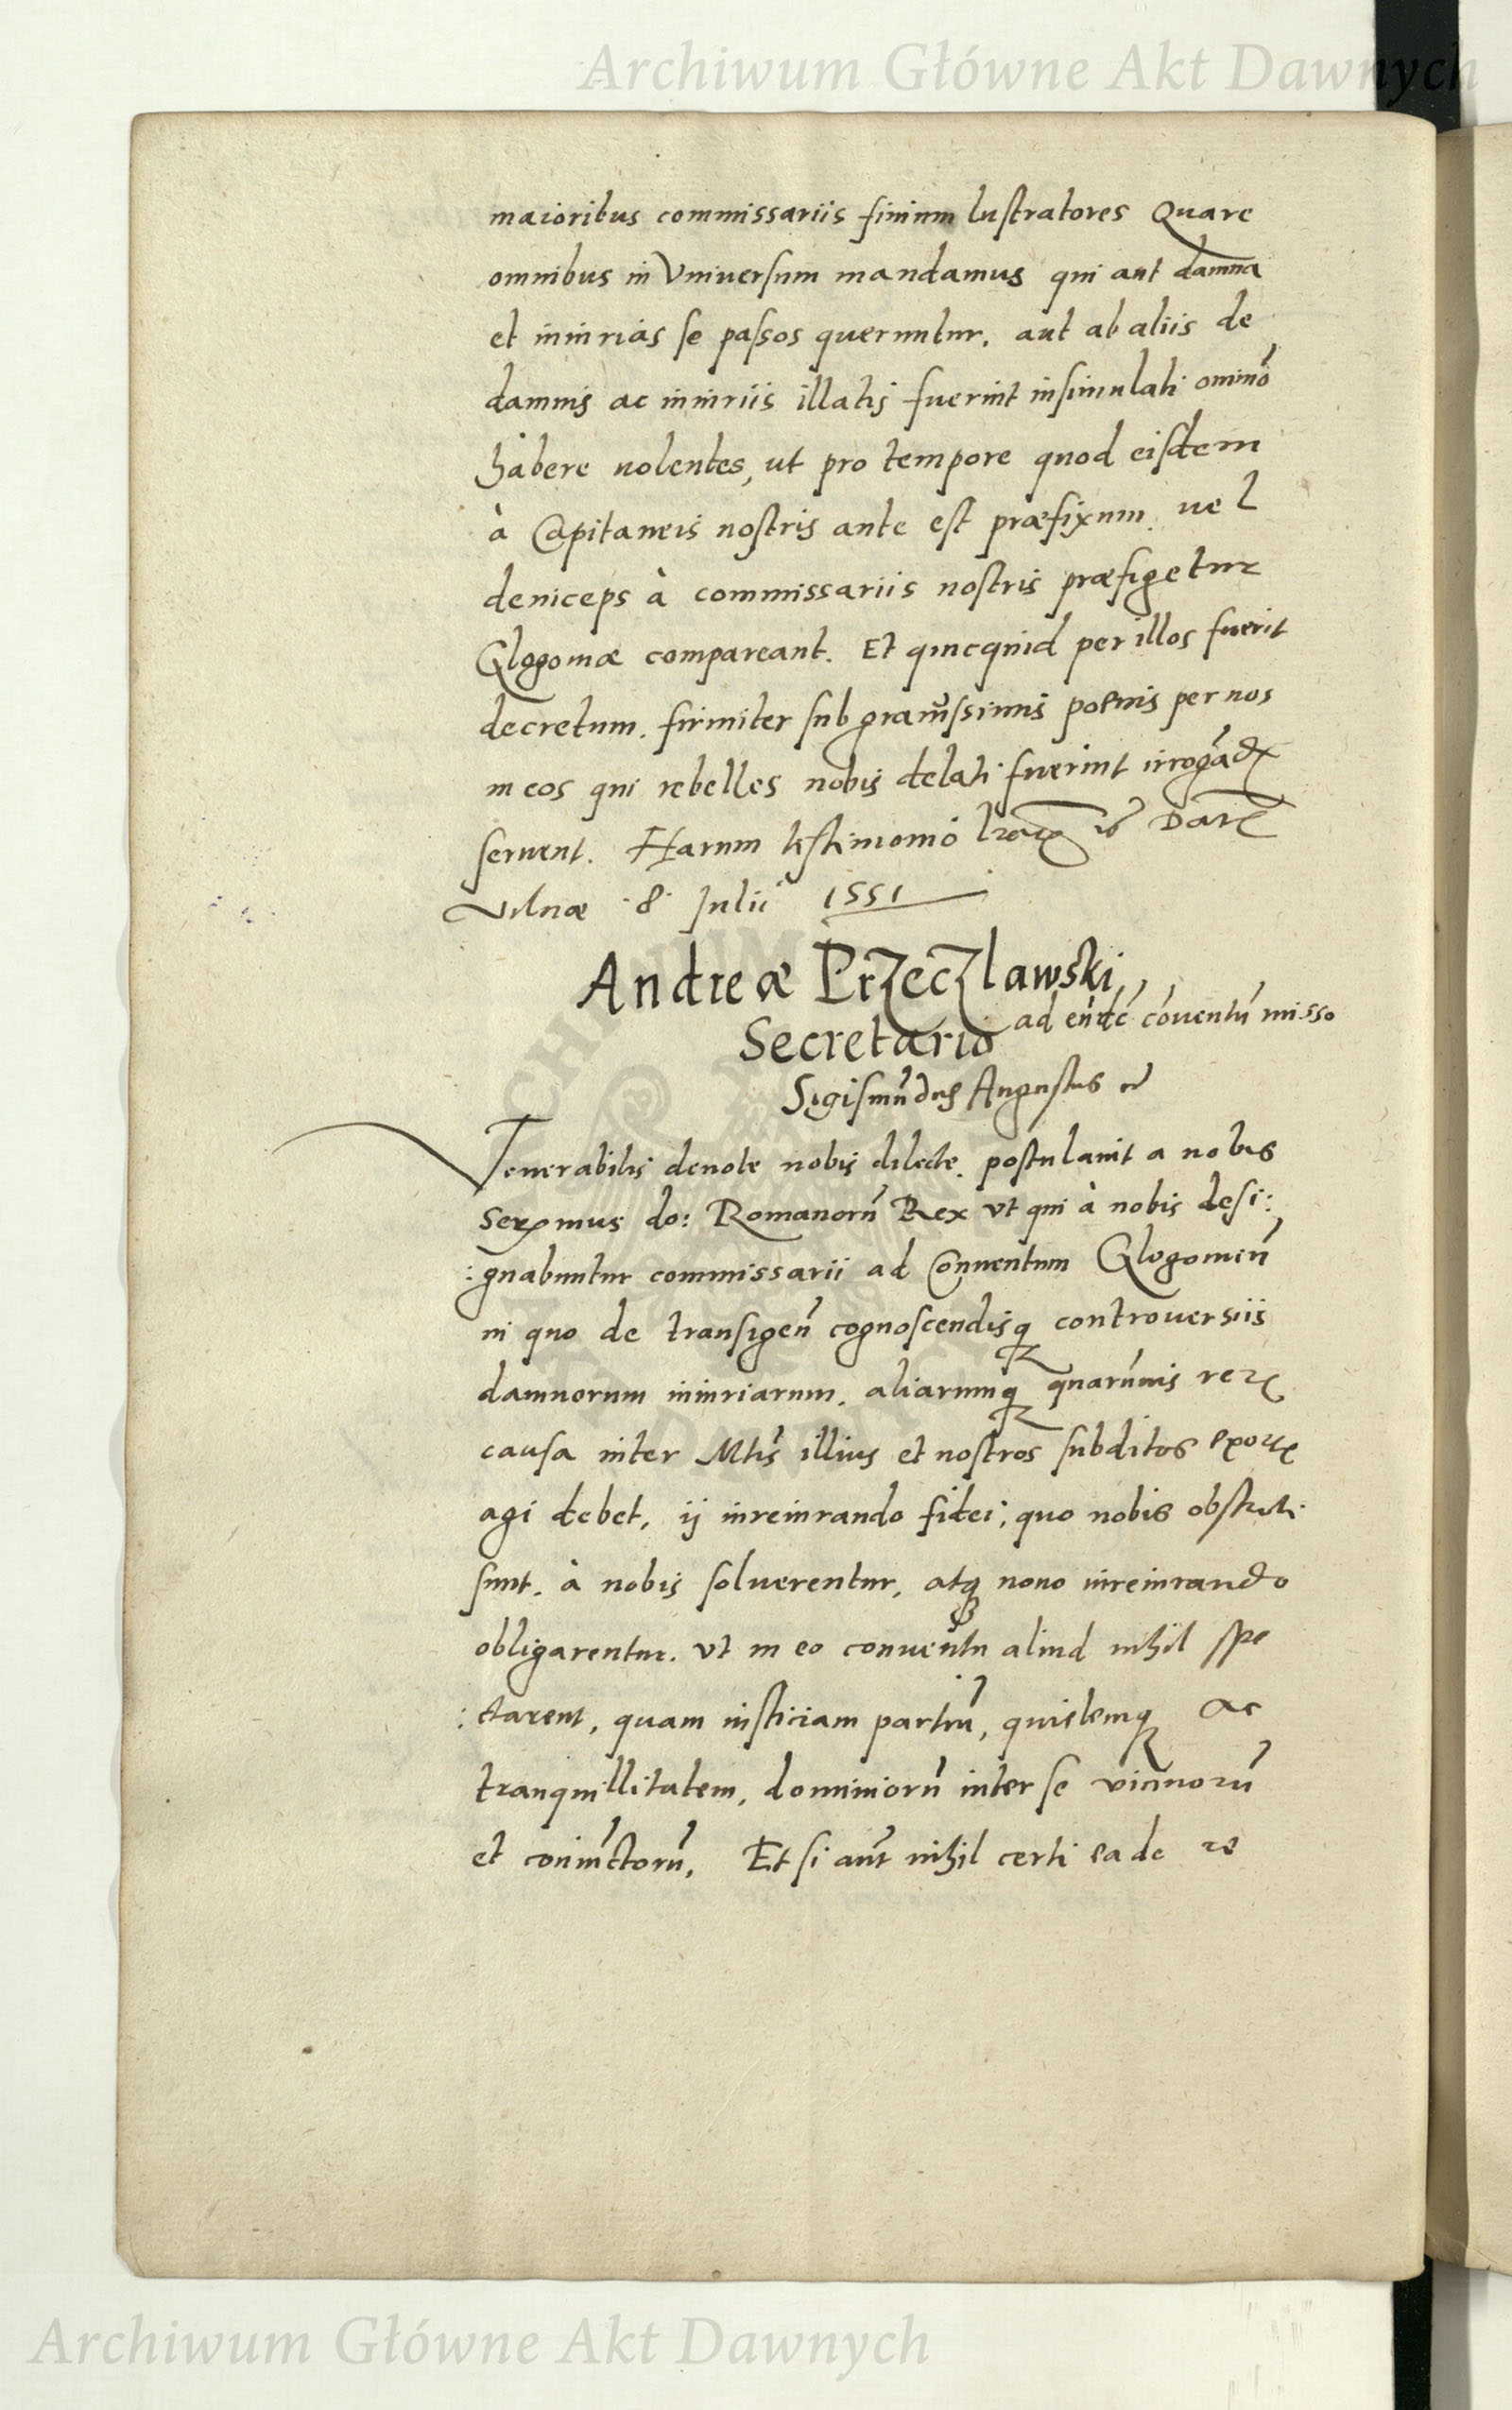 Archiwum Główne Akt Dawnych
maioribus commissariis finium lustratores Quare
omnibus in Vniversum mandamus qui aut damna
et iniurias se passos queruntur, aut ab aliis de
damnis ac iniuriis illatis fuerint insimulati omnino
habere volentes, ut pro tempore quod eisdem
à Capitaneis nostris ante est præfixum, vel
deniceps à commissariis nostris præfigetur
Glogouiæ compareant. Et quicquid per illos fuerit
decretum, firmiter sub grauissimis poenis per nos
in eos qui rebelles nobis delati fuerint irrogãdx
seruent. Harum testimonio lrarum Dat
Vilnæ 8 Julii 1551
Andreæ Przeczlawski
Secretario ad eũdẽ cõuentũ misso
Sigismũdus Augustus
Venerabilis deuote nobis dilecte, postulauit a nobis
Serenmus do: Romanorũ Rex vt qui à nobis desi:
:gnabuntur commissarii ad Conuentum Glogouieñ
in quo de transigeñ cognoscendisq controuersiis
damnorum iniuriarum, aliarumq quarũuis rer
causa inter Mtis illius et nostros subditos exor
agi debet, ij iureiurando fidei, quo nobis obstricti
sunt, à nobis soluerentur, atq nouo iureiurando
obligarentur, vt in eo conuentu aliud nihil spe
:ctarent, quam iusticiam partiũ, quietemq ac
tranquillitatem, dominiorũ inter se vicinorũ
et coniũctorũ, Et si aũt nihil certi ea de re
Archiwum Główne Akt Dawnych